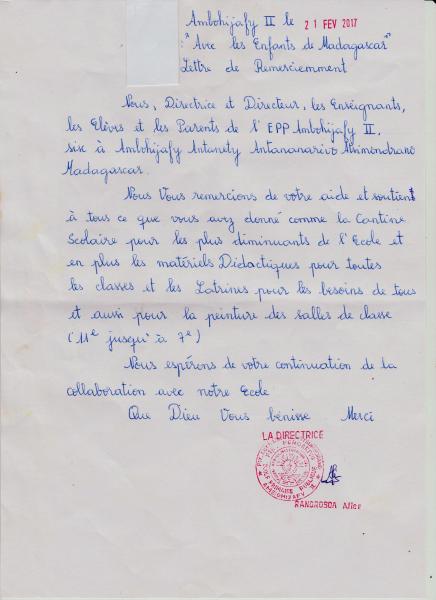 Ambohijafy II le 21 FEV 2017
: "Avec les Enfants de Madagascar"
Lettre de Remerciemment
Nous, Directrice et Directeur, les Enseignants,
les Elèves et les Parents de l'EPP Ambohijafy II,
sise à Ambohijafy Antanety Antananarivo Atsimondrano
Madagascar.
Nous Vous remercions de votre aide et soutient
à tous ce que vous avez donné comme la Cantine
Scolaire pour les plus diminuants de l'Ecole et
en plus les matériels Didactiques pour toutes
les classes et les Latrines pour les besoins de tous
et aussi pour la peinture des salles de classe
(11e jusqu'à 7e)
Nous espérons de votre continuation de la
collaboration avec notre Ecole
Que Dieu Vous bénisse Merci
LA DIRECTRICE
PRIMAIRE PUBLIQUE
AMBOHIJAFY II
RANOROSOA Alice